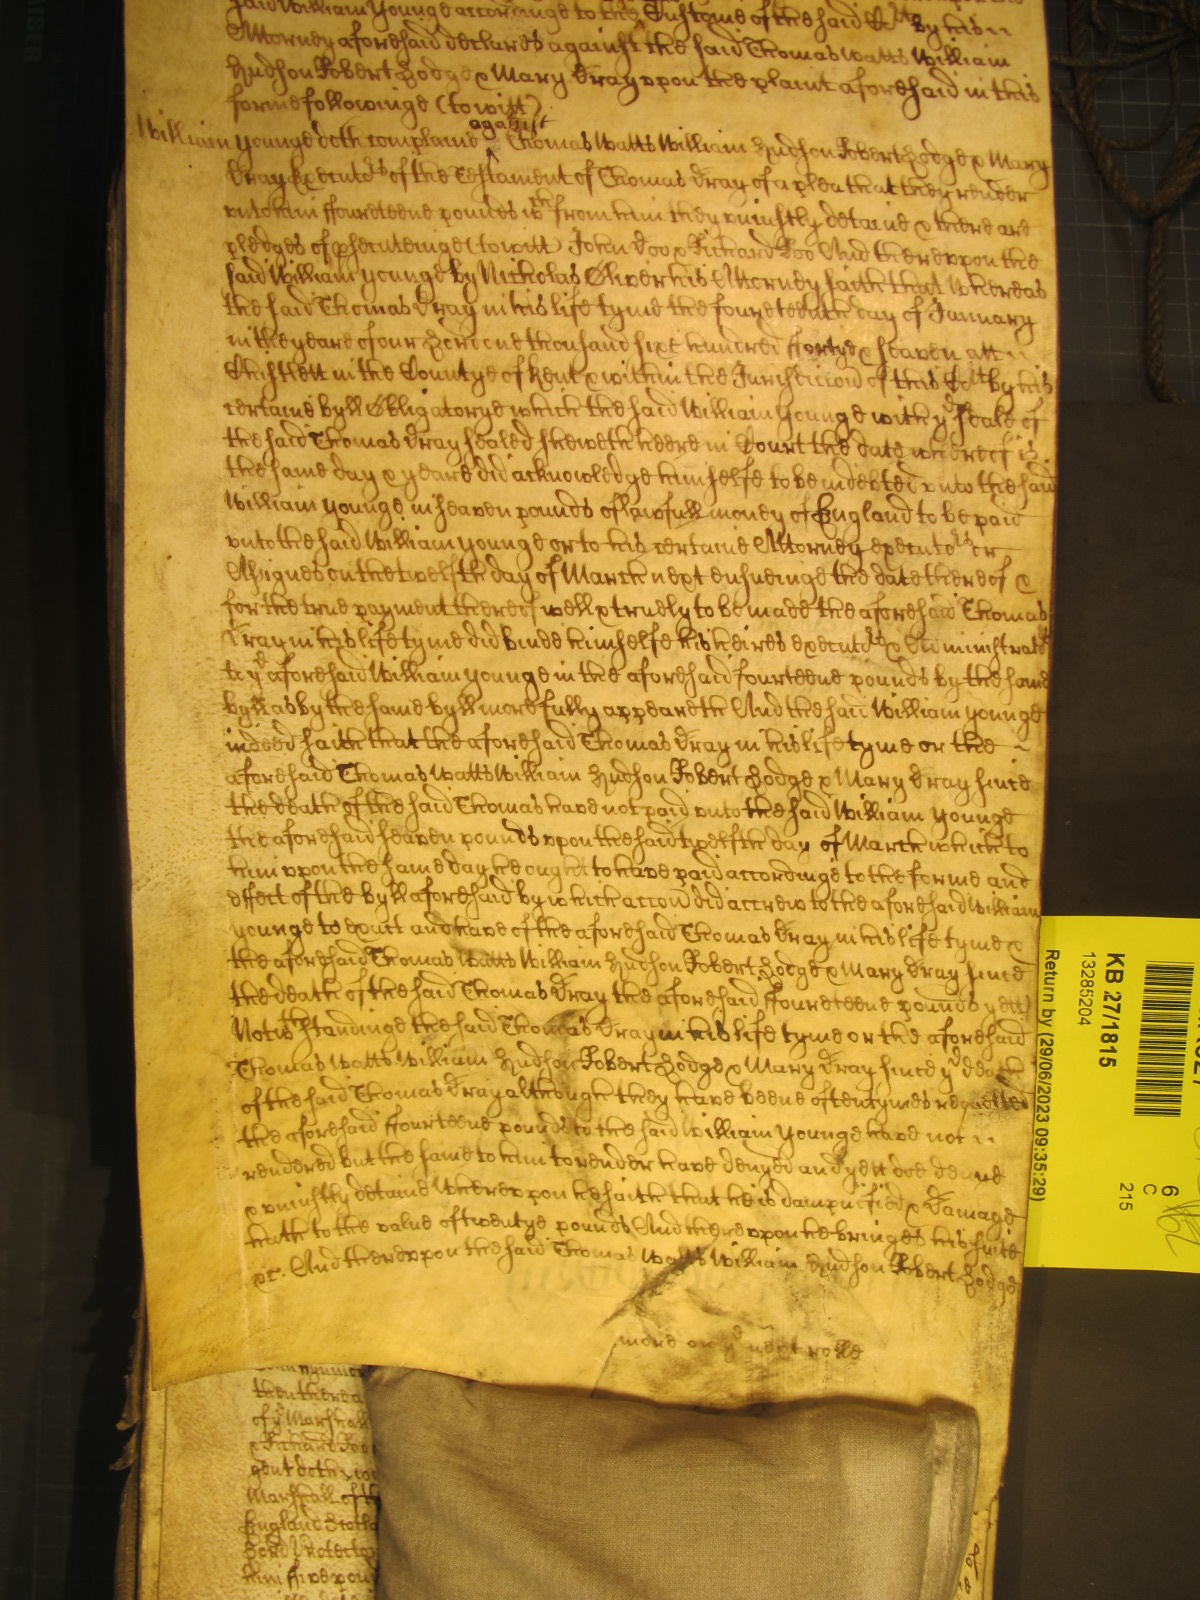 said William Younge accordinge to the Custome of the said Cort by his
Attorney aforesaid declares against the said Thomas Watts William
Hudson Robert Hodge & Mary Dray uppon the plaint aforesaid in this
forme followinge (to witt)
against
William Younge doth complaine ^ Thomas Watts William Hudson Robert Hodge & Mary
Dray Executors of the Testament of Thomas Dray of a plea that they render
unto him ffoureteene pounds wch from him they uniustly detaine & there are
pledges of prosecuteinge (to witt) John Doo & Richard Roo And thereuppon the
said William Younge by Nicholas Oliver his Attorney saith that Whereas
the said Thomas Dray in his life tyme the foureteenth day of January
in the yeare of our Lord one thousand sixe hundred ffortye & seaven att
Chislett in the Countye of Kent & within the Jurisdiccion of this Cort by his
certaine byll Obligatorye which the said William Younge with ye seale of
the said Thomas Dray sealed sheweth heere in Court the date whereof is
the same day & yeare did acknowledge himselfe to be indebted unto the said
William Younge in seaven pounds of lawfull money of England to be paid
unto the said William Younge or to his certaine Attorney executors or
Assignes on the twelfth day of March next ensueinge the date thereof &
for the true payment thereof well & truely to be made the aforesaid Thomas
Dray in his life tyme did binde himselfe his heires executors & Administrators
to ye aforesaid William Younge in the aforesaid fourteene pounds by the same
byll as by the same byll more fully appeareth And the said William Younge
indeed saith that the aforesaid Thomas Dray in his life tyme or the
aforesaid Thomas Watts William Hudson Robert Hodge & Mary Dray since
the death of the said Thomas have not paid unto the said William Younge
the aforesaid seaven pounds uppon the said twelfth day of March which to
him uppon the same day he ought to have paid accordinge to the forme and
effect of the byll aforesaid by which accon did accrew to the aforesaid William
Younge to exact and have of the aforesaid Thomas Dray in his life tyme &
the aforesaid Thomas Watts William Hudson Robert Hodge & Mary Dray since
the death of the said Thomas Dray the aforesaid ffoureteene pounds yett
Notwthstandinge the said Thomas Dray in his life tyme or the aforesaid
Thomas Watts William Hudson Robert Hodge & Mary Dray since ye death
of the said Thomas Dray although they have beene oftentymes requested
the aforesaid ffourteene pounds to the said William Younge have not
rendered but the same to him to render have denyed and yett doe denie
& uniustly detaine Whereuppon he saith that he is dampnified & Damage
hath to the value of twentye pounds And thereuppon he bringes his suite
&c. And thereuppon the said Thomas Watts William Hudson Robert Hodge
more on ye next rolle
then therea
of ye Marshall
& Richard Roo
gent doth
Marshall of th
England Scotla
Lord Protector
him ffive poun
KB 27/1815
13285204
Return by (29/06/2023 09:35:29)
6
C
215